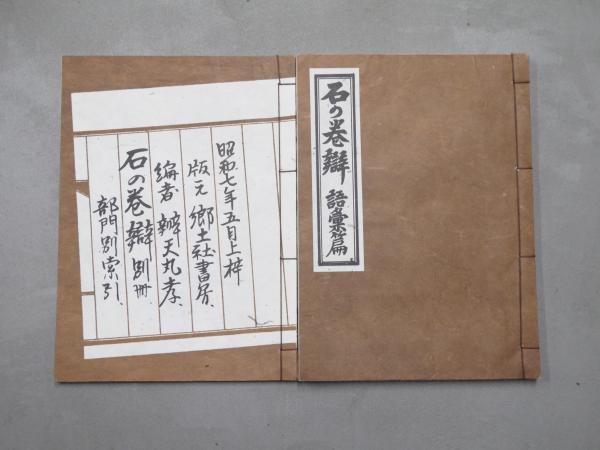 石の巻辯 語彙篇
昭和七年五月上梓
版元 郷土社書房、
編者 辨天丸孝、
石の巻辯 別冊、
部門別索引、